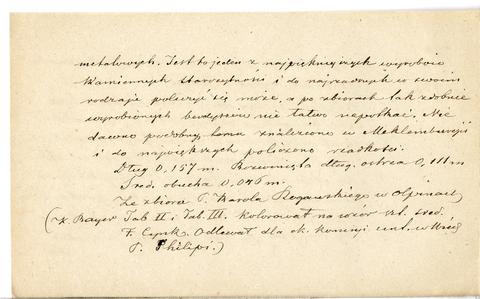 metalowych. Jest to jeden z najpiękniejszych wyrobów
kamiennych starożytności i do najrzadszych w swoim
rodzaju policzyć się może, a po zbiorach tak zdobnie
wyrobionych nie łatwo napotkać. Nie
dawno podobny znaleziono w Meklemburgji
i do największych policzono rzadkości.
Dług. 0,157m. dług. ostrza 0,111m
Śred. obucha 0,046m.
Ze zbioru P. Karola Rogawskiego w Ołpinach
(x. Bayer Tab II i Tab. III. Kolorował na wzór śred.
F. Cynk. Odlewał dla ck. komisji cent. w
P. Philipi.)